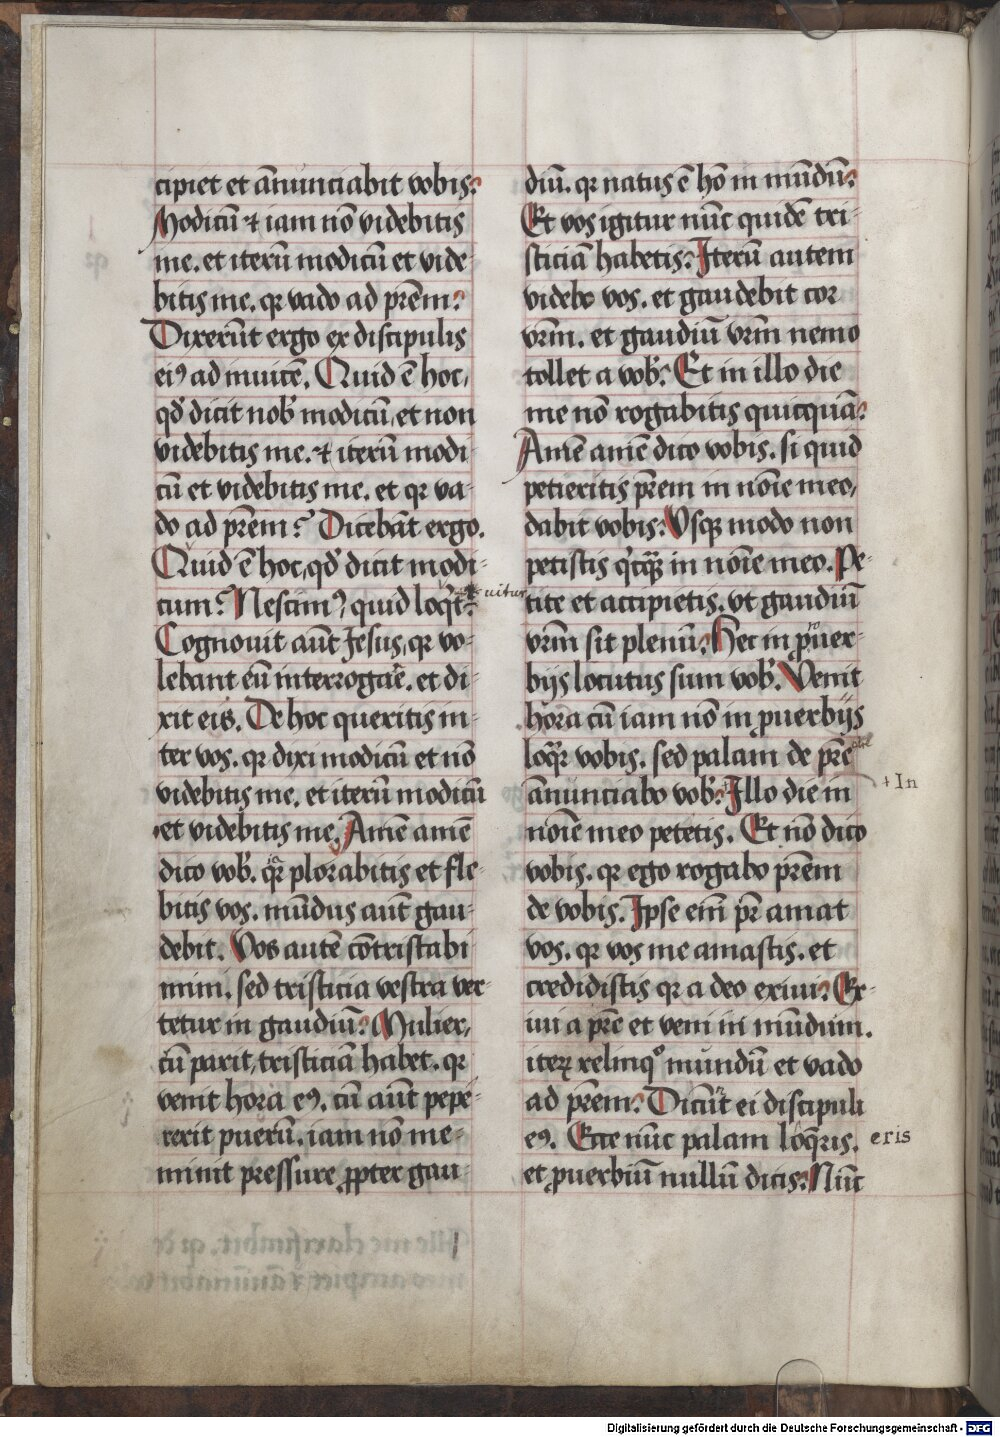 cipiet et an̄unciabit vobis.
Modicū & iam nō videbitis
me. et iterū modicū et vide-
bitis me. qꝛ vado ad pr̄em.
Dixerūt ergo ex discipulis
eiꝰ ad inuicē. Quid ē hoc,
qđ dicit nob̄ modicū, et non
videbitis me. & iterū modi-
cū et videbitis me. et qꝛ va-
do ad pr̄em? Dicebāt ergo.
Quid ē hoc, qđ dicit modi-
cum? Nescimꝰ, quid loqt̄. uitur
Cognouit aūt Jesus, qꝛ vo-
lebant eū interrogar̄e. et di-
xit eis. De hoc queritis in-
ter vos. qꝛ dixi modicū et nō
videbitis me. et iterū modicū
et videbitis me. Amē amē
dico vob̄. qꝛ plorabitis et fle-
bitis vos. mūdus aūt gau-
debit. Vos autē cōtristabi
mini. sed tristicia vestra ver-
tetur in gaudiū. Mulier,
cū parit, tristiciā habet. qꝛ
venit hora eꝰ. cū aūt pepe-
rerit puerū. iam nō me-
minit pressure ꝓpter gau
diū. qꝛ natus ē hō in mūdū.
Et vos igitur nūc quidē tri-
sticiā habetis. Iterū autem
videbo vos. et gaudebit cor
vr̄m. et gaudiū vr̄m nemo
tollet a vob̄. Et in illo die
me nō rogabitis quicquā.
Amē amē dico vobis. si quid
petieritis pr̄em in noīe meo,
dabit vobis. Vsqꝫ modo non
petistis qͥcqꝫ in noīe meo. Pe-
tite et accipietis. vt gaudiū
vr̄m sit plenū. Hec in ꝓuer-
bijs locutus sum vob̄. Venit
hora cū iam nō in ꝓuerbijs
loqr̄ vobis. sed palam de pr̄e
an̄unciabo vob̄. Illo die in + In
noīe meo petetis. Et nō dico
vobis. qꝛ ego rogabo pr̄em
de vobis. Ipse eni̅ pr̄ amat
vos. qꝛ vos me amastis. et
credidistis qꝛ a deo exiui. Ex-
iui a pr̄e et veni in mūdum.
iteꝝ relinqͦ mundū et vado
ad pr̄em. Dicūt ei discipuli
eꝰ. Ecce nūc palam loq̄ris. eris
et ꝓuerbiū nullū dicis. Nūc
Digitalisierung gefördert durch die Deutsche Forschungsgemeinschaft - DFG